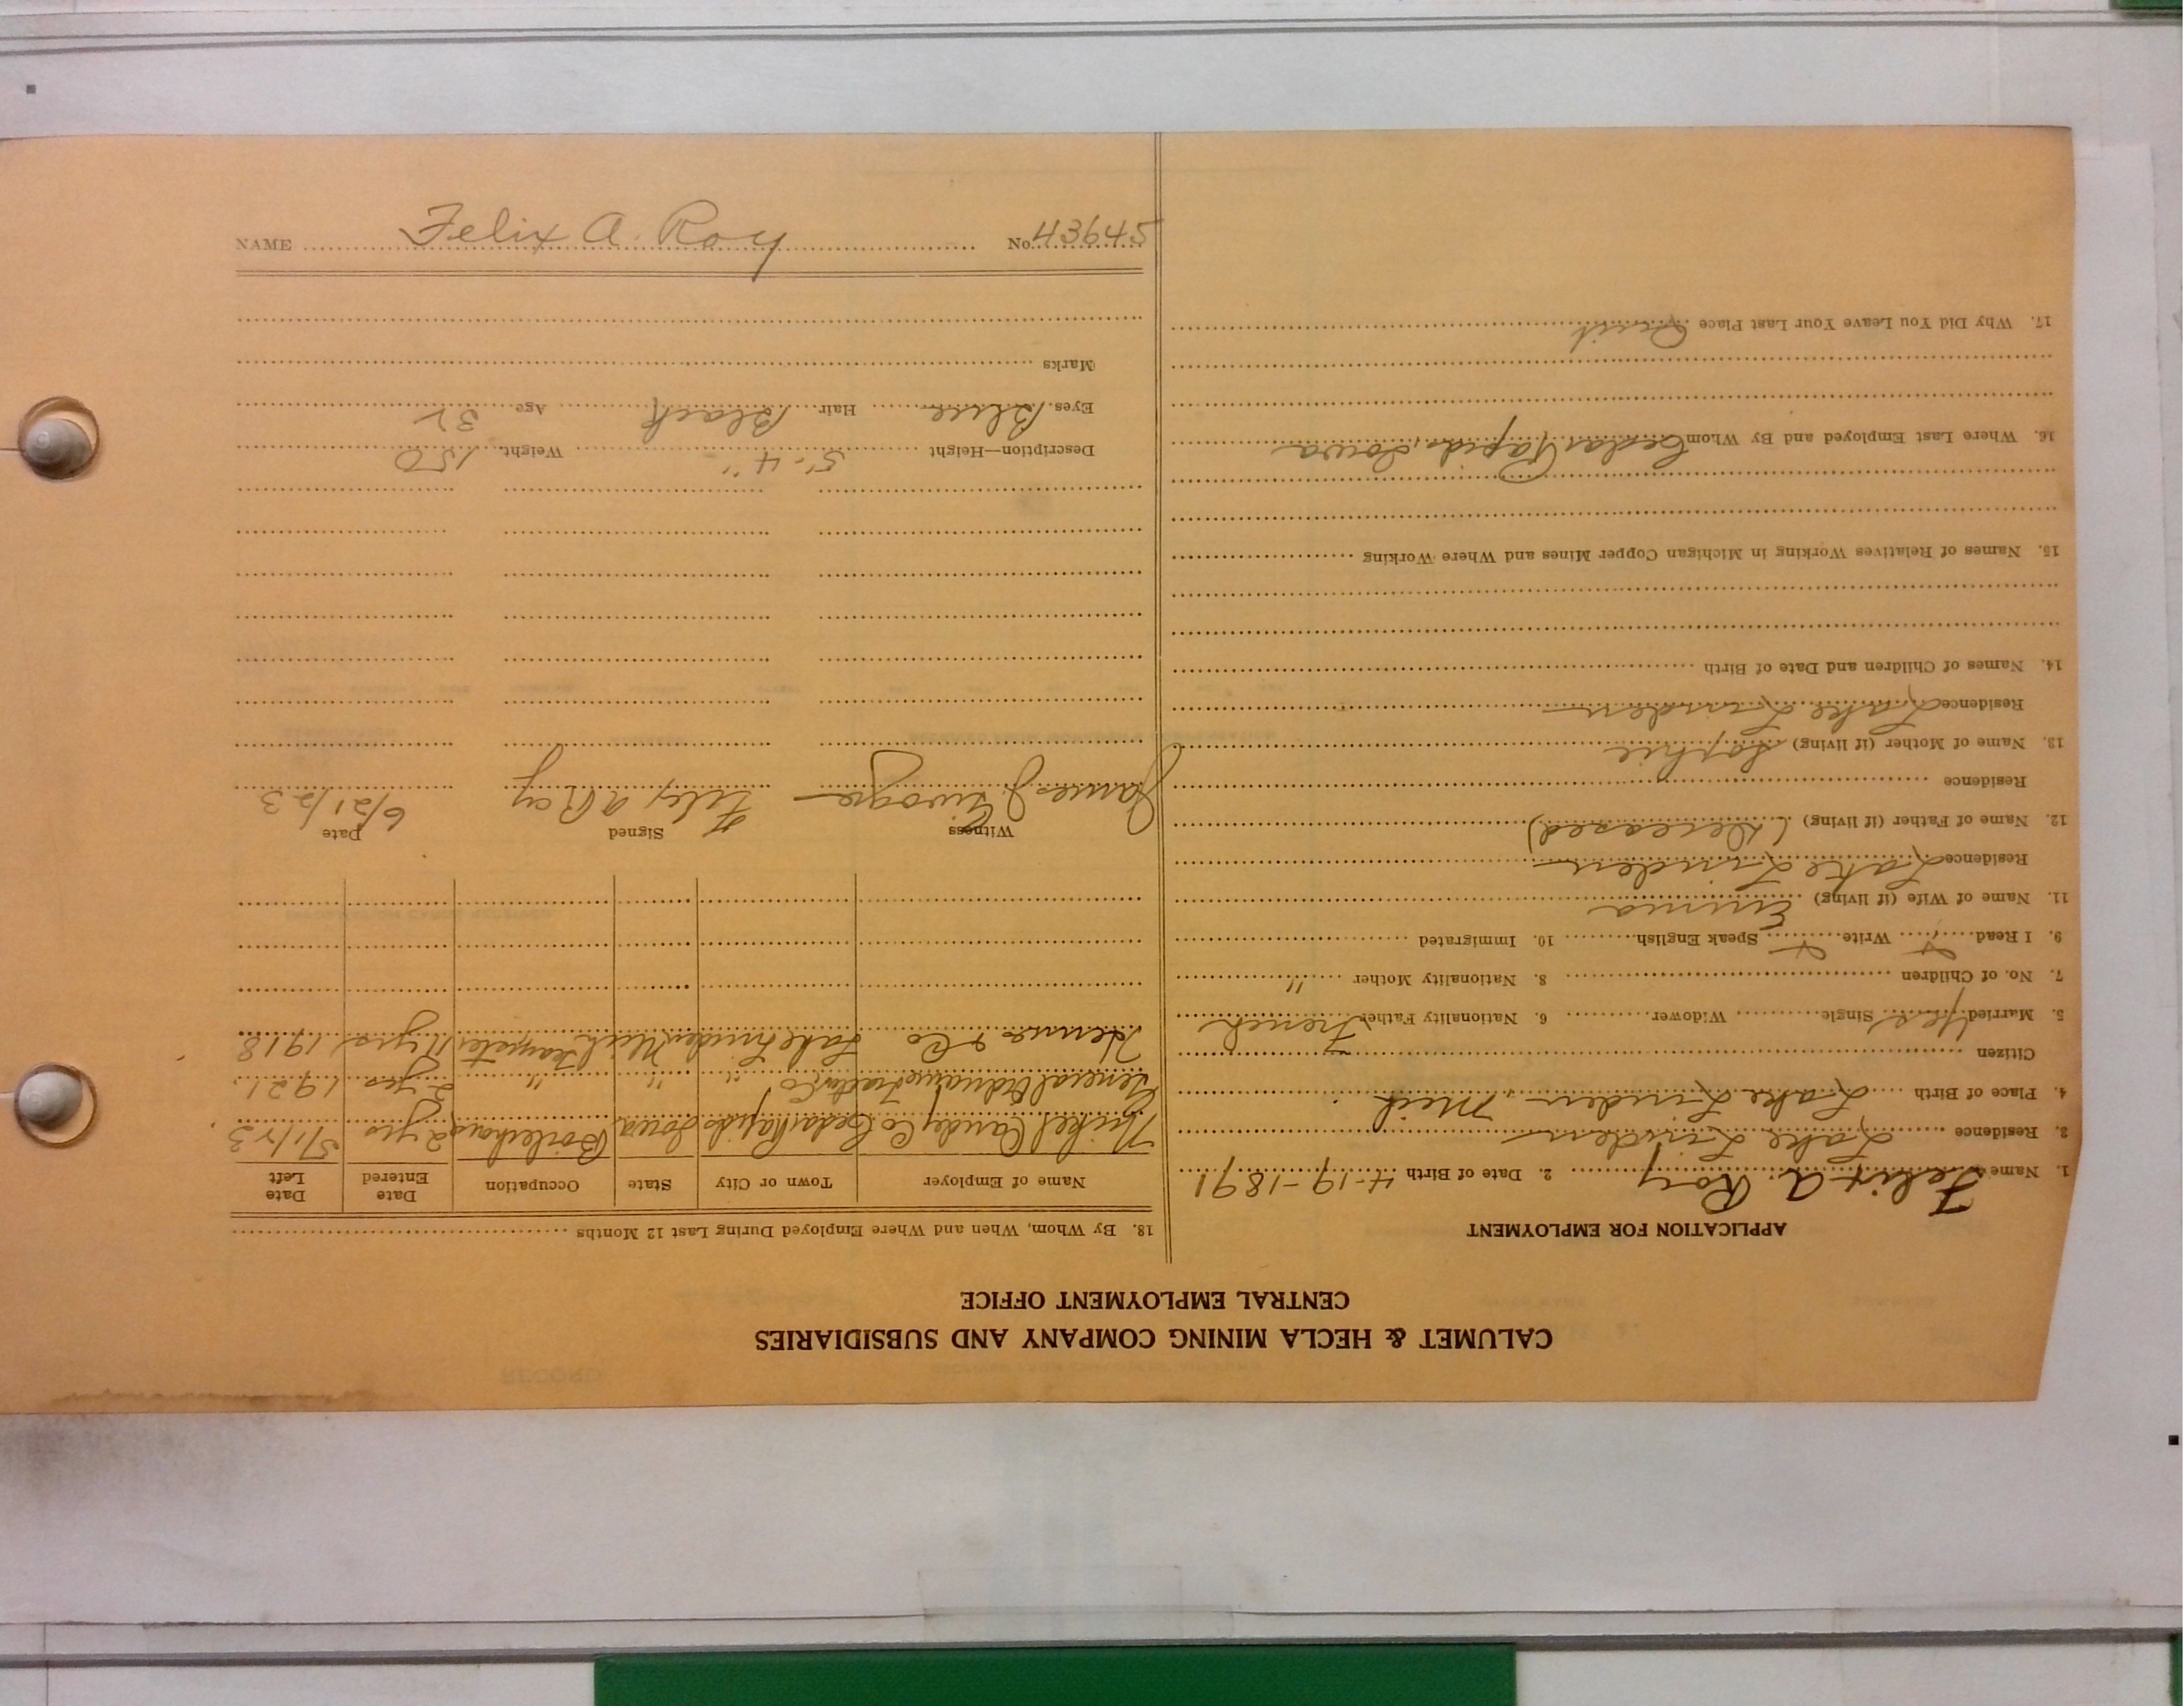 CALUMET & HECLA MINING COMPANY AND SUBSIDIARIES
CENTRAL EMPLOYMENT OFFICE
APPLICATION FOR EMPLOYMENT
1. Name Felix A. Roy 2. Date of Birth 4-19-1891
3. Residence Lake Linden
4. Place of Birth Lake Linden, Mich
Citizen
5. Married Yes Single Widower 6. Nationality Father French
7. No. of Children 8. Nationality Mother "
9. I Read Write Speak English 10. Immigrated
11. Name of Wife (if living) Emma
Residence Lake Linden
12. Name of Father (if living) (Deceased)
Residence
13. Name of Mother (if living) Sophie
Residence Lake Linden
14. Names of Children and Date of Birth
15. Names of Relatives Working in Michigan Copper Mines and Where Working
16. Where Last Employed and By Whom Cedar Rapids, Iowa
17. Why Did You Leave Your Last Place Quit
18. By Whom, When and Where Employed During Last 12 Months
Name of Employer Town or City State Occupation Date Entered Date Left
Candy Co Cedar Rapids Iowa Boilerhouse 2 yrs 5/1/23
General " " " 2 yrs 1921
& Co Lake Linden Mich Teamster 11 yrs 1918
Witness Signed Date
James J. Felix A Roy 6/21/23
Description—Height 5'-4" Weight 150
Eyes Blue Hair Black Age 32
Marks
NAME Felix A. Roy No. 43645